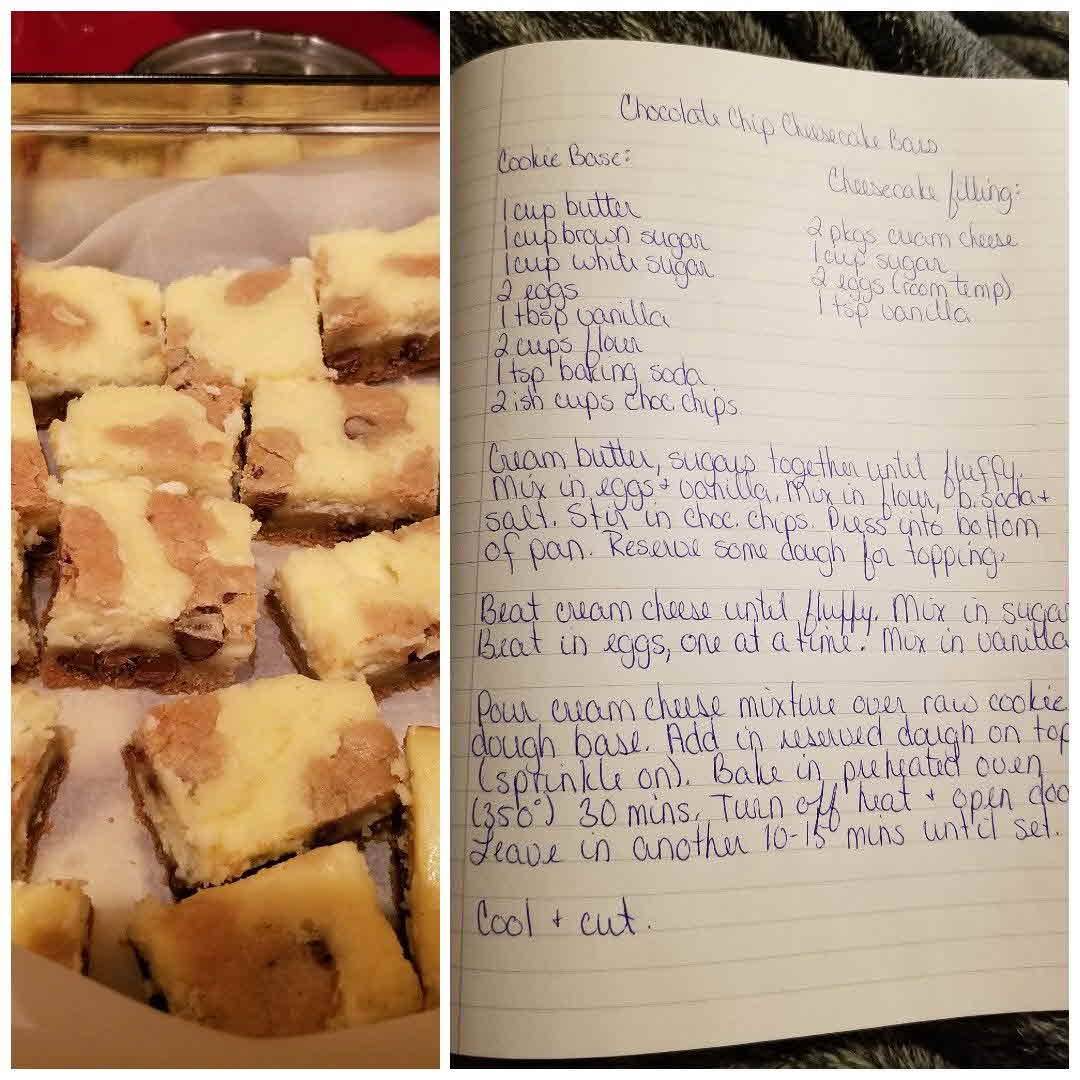 Chocolate Chip Cheesecake Bars
Cookie Base:
1 cup butter
1 cup brown sugar
1 cup white sugar
2 eggs
1 tbsp vanilla
2 cups flour
1 tsp baking soda
2 ish cups choc chips.
Cheesecake filling:
2 pkgs cream cheese
1 cup sugar
2 eggs (room temp)
1 tsp vanilla
Cream butter, sugars together until fluffy.
Mix in eggs + vanilla. Mix in flour, b. soda +
salt. Stir in choc. chips. Press into bottom
of pan. Reserve some dough for topping.
Beat cream cheese until fluffy. Mix in sugar
Beat in eggs, one at a time. Mix in vanilla
Pour cream cheese mixture over raw cookie
dough base. Add in reserved dough on top
(sprinkle on). Bake in preheated oven
(350°) 30 mins. Turn off heat + open doo
Leave in another 10-15 mins until set.
Cool + cut.